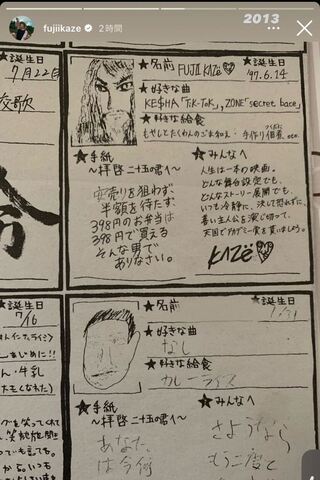 fujiikaze 2時間
2013
★誕生日
7月22日
校歌
★名前 FUJII KAZe
★誕生日
'97.6.14
★好きな曲
KE$HA「TiK-ToK」, ZONE「secret base」
★好きな給食
もやしとたくわんのごまあえ・手作り佃煮 etc.
つくだに
★手紙
〜拝啓 二十五の君へ〜
安売りを狙わず
半額を待たず
398円のお弁当は
398円で買える
そんな男で
ありなさい。
★みんなへ
人生は一本の映画。
どんな舞台設定でも、
どんなストーリー展開でも、
いつも冷静に、決して恐れずに、
善い主人公を演じ切って、
天国でアカデミー賞を貰いましょう。
KAZe
★誕生日
7/16
★名前
★誕生日
★好きな曲
なし
★好きな給食
カレーライス
★手紙
〜拝啓 二十五の君へ〜
あなた
は今何
★みんなへ
さようなら
もう二度と